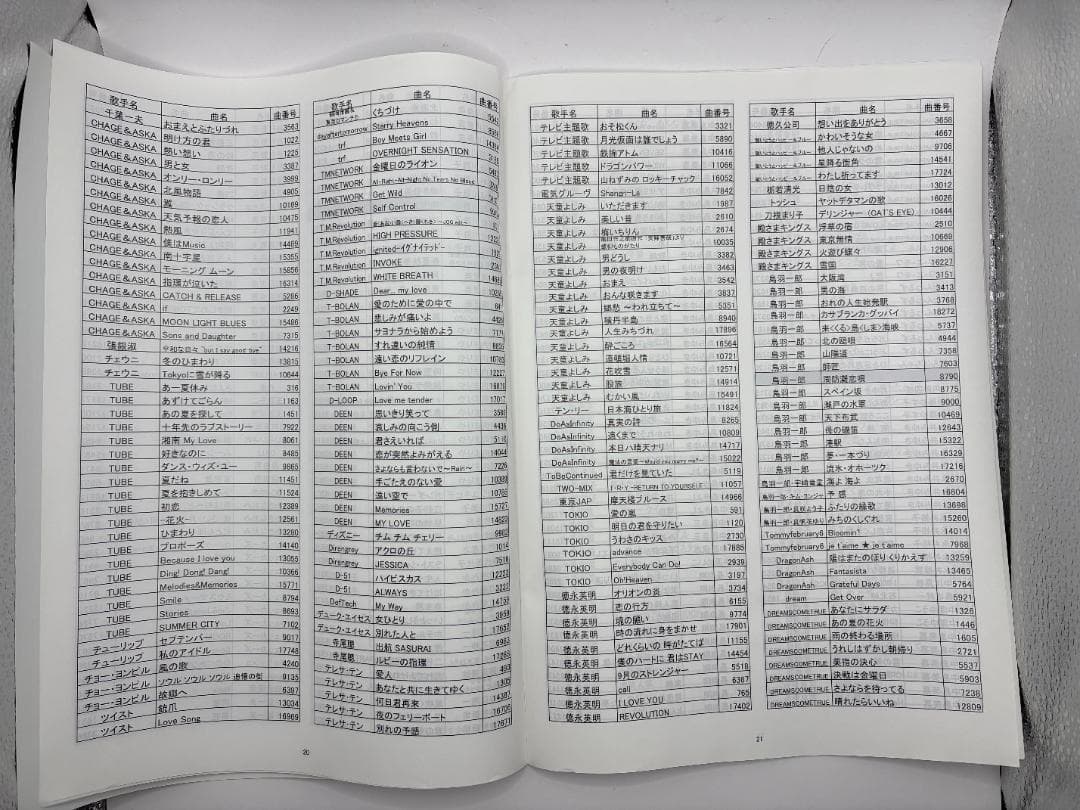 歌手名 曲名 曲番号
千葉一夫 おまえとふたりづれ 3563
CHAGE&ASKA 明け方の君 1022
CHAGE&ASKA 熱い想い 1225
CHAGE&ASKA 男と女 3387
CHAGE&ASKA オンリー・ロンリー 3989
CHAGE&ASKA 北風物語 4905
CHAGE&ASKA 10169
CHAGE&ASKA 天気予報の恋人 10475
CHAGE&ASKA 熱風 11941
CHAGE&ASKA 僕はMusic 14469
CHAGE&ASKA 南十字星 15355
CHAGE&ASKA モーニング ムーン 15856
CHAGE&ASKA 指環が泣いた 16314
CHAGE&ASKA CATCH & RELEASE 5286
CHAGE&ASKA if 2249
CHAGE&ASKA MOON LIGHT BLUES 15486
CHAGE&ASKA Sons and Daughter 7315
張震淑 平和な日々 14216
チェウニ 冬のひまわり 13815
チェウニ Tokyoに雪が降る 10644
TUBE あー夏休み 316
TUBE あずけてごらん 1163
TUBE あの夏を探して 1451
TUBE 十年先のラブストーリー 7922
TUBE 湘南 My Love 8061
TUBE 好きなのに 8485
TUBE ダンス・ウィズ・ユー 9665
TUBE 夏だね 11451
TUBE 夏を抱きしめて 11524
TUBE 初恋 12389
TUBE -花火- 12561
TUBE ひまわり 13280
TUBE プロポーズ 14140
TUBE Because I love you 13055
TUBE Ding! Dong! Dang! 10366
TUBE Melodies&Memories 15771
TUBE Smile 8794
TUBE Stories 8693
TUBE SUMMER CITY 7102
チューリップ セプテンバー 9017
チューリップ 私のアイドル 17748
チョー・ヨンピル 風の歌 4240
チョー・ヨンピル ソウル ソウル ソウル 追憶の街 9135
チョー・ヨンピル 故郷へ 6397
ツイスト 銃爪 13034
ツイスト Love Song 16969
歌手名 曲名 曲番号
くちづけ
dayaftertomorrow Starry Heavens
trf Boy Meets Girl
trf OVERNIGHT SENSATION
TMNETWORK 金曜日のライオン
TMNETWORK
TMNETWORK Get Wild
TMNETWORK Self Control
T.M.Revolution
T.M.Revolution HIGH PRESSURE
T.M.Revolution ignited-イグナイテッド-
T.M.Revolution INVOKE
T.M.Revolution WHITE BREATH
D-SHADE Dear... my love
T-BOLAN 愛のために愛の中で
T-BOLAN 悲しみが痛いよ
T-BOLAN サヨナラから始めよう
T-BOLAN すれ違いの純情
T-BOLAN 遠い恋のリフレイン
T-BOLAN Bye For Now
T-BOLAN Lovin' You
D-LOOP Love me tender
DEEN 思いきり笑って
DEEN 哀しみの向こう側
DEEN 君さえいれば
DEEN 恋が突然よみがえる
DEEN さよならも言わないで〜Rain〜
DEEN 手ごたえのない愛
DEEN 遠い空で
DEEN Memories
DEEN MY LOVE
ディズニー チム チム チェリー
Direngrey アクロの丘
Direngrey JESSICA
D-51 ハイビスカス
D-51 ALWAYS
DefTech My Way
デューク・エイセス 女ひとり
デューク・エイセス 別れた人と
寺尾聰 出航 SASURAI
寺尾聰 ルビーの指環
テレサ・テン 愛人
テレサ・テン あなたと共に生きてゆく
テレサ・テン 何日君再来
テレサ・テン 夜のフェリーボート
テレサ・テン 別れの予感
20
歌手名 曲名 曲番号
テレビ主題歌 おそ松くん 3321
テレビ主題歌 月光仮面は誰でしょう 5890
テレビ主題歌 鉄腕アトム 10416
テレビ主題歌 ドラゴンパワー 11066
テレビ主題歌 山ねずみの ロッキーチャック 16052
電気グルーヴ Shangri-La 7842
天童よしみ いただきます 1987
天童よしみ 美しい昔 2610
天童よしみ 梅いちりん 2674
天童よしみ 10035
天童よしみ 男どうし 3382
天童よしみ 男の夜明け 3463
天童よしみ おまえ 3542
天童よしみ おんな咲きます 3837
天童よしみ 5351
天童よしみ 積丹半島 8940
天童よしみ 人生みちづれ 17896
天童よしみ 酔ごころ 16564
天童よしみ 道頓堀人情 10721
天童よしみ 花吹雪 12571
天童よしみ 船旅 14914
天童よしみ むかい風 15491
テン・リー 日本海ひとり旅 11824
DoAsInfinity 真実の詩 8265
DoAsInfinity 遠くまで 10809
DoAsInfinity 本日ハ晴天ナリ 14717
DoAsInfinity 15022
ToBeContinued 君だけを見ていた 5119
TWO-MIX T・R・Y -RETURN TO YOURSELF 11057
東京JAP 摩天楼ブルース 14966
TOKIO 愛の嵐 591
TOKIO 明日の君を守りたい 1120
TOKIO うわさのキッス 2730
TOKIO advance 17885
TOKIO Everybody Can Do! 2939
TOKIO Oh!Heaven 3197
徳永英明 オリオンの炎 3734
徳永英明 恋の行方 6155
徳永英明 魂の願い 9774
徳永英明 時の流れに身をまかせ 17901
徳永英明 どれくらいの 時がたてば 11155
徳永英明 僕のハートに 君はSTAY 14454
徳永英明 9月のストレンジャー 5518
徳永英明 call 6367
徳永英明 I LOVE YOU 765
徳永英明 REVOLUTION 17402
歌手名 曲名 曲番号
徳久公司 想い出をありがとう 3658
かわいそうな女 4667
他人じゃないの 9706
星降る街角 14541
わたし祈ってます 17724
栃若清光 日陰の女 13012
トッシュ ヤットデタマンの歌 16026
刀根まり子 デリンジャー (CAT'S EYE) 10444
殿さまキングス 浮草の宿 2510
殿さまキングス 東京無情 10669
殿さまキングス 火遊び蝶々 12906
殿さまキングス 雪国 16227
鳥羽一郎 大阪湾 3151
鳥羽一郎 男の海 3413
鳥羽一郎 おれの人生始発駅 3768
鳥羽一郎 カサブランカ・グッバイ 18272
鳥羽一郎 来(くる)島(しま)海峡 5737
鳥羽一郎 北の旅唄 4944
鳥羽一郎 山陽道 7358
鳥羽一郎 師匠 7603
鳥羽一郎 周防灘恋唄 8790
鳥羽一郎 スペイン坂 8775
鳥羽一郎 瀬戸の水軍 9000
鳥羽一郎 天下布武 10469
鳥羽一郎 母の磯笛 12643
鳥羽一郎 港駅 15322
鳥羽一郎 夢・一本づり 16329
鳥羽一郎 流氷・オホーツク 17216
海よ 海よ 2670
予感 16604
ふたりの縁歌 13698
みちのくしぐれ 15260
Tommyfebruary6 Bloomin'! 14014
Tommyfebruary6 je t'aime ★ je t'aime 7968
DragonAsh 陽はまたのぼりくりかえす 13259
DragonAsh Fantasista 13465
DragonAsh Grateful Days 5764
dream Get Over 5921
DREAMSCOMETRUE あなたにサラダ 1326
DREAMSCOMETRUE あの夏の花火 1446
DREAMSCOMETRUE 雨の終わる場所 1605
DREAMSCOMETRUE うれしはずかし朝帰り 2721
DREAMSCOMETRUE 薬指の決心 5537
DREAMSCOMETRUE 決戦は金曜日 5903
DREAMSCOMETRUE さよならを待ってる 7238
DREAMSCOMETRUE 晴れたらいいね 12809
21